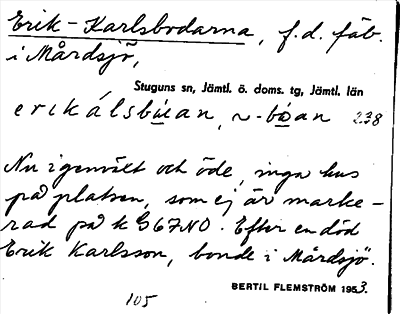 Erik-Karlsbodarna, f.d. fäb.
i Mårdsjö,
Stuguns sn, Jämtl. ö. doms. tg, Jämtl. län
erikálsbu̲an, ~-bo̲an 238
Nu igenväxt och öde, inga hus
på platsen, som ej är marke-
rad på k G67NO. Efter en död
Erik Karlsson, bonde i Mårdsjö.
BERTIL FLEMSTRÖM 1953.
105